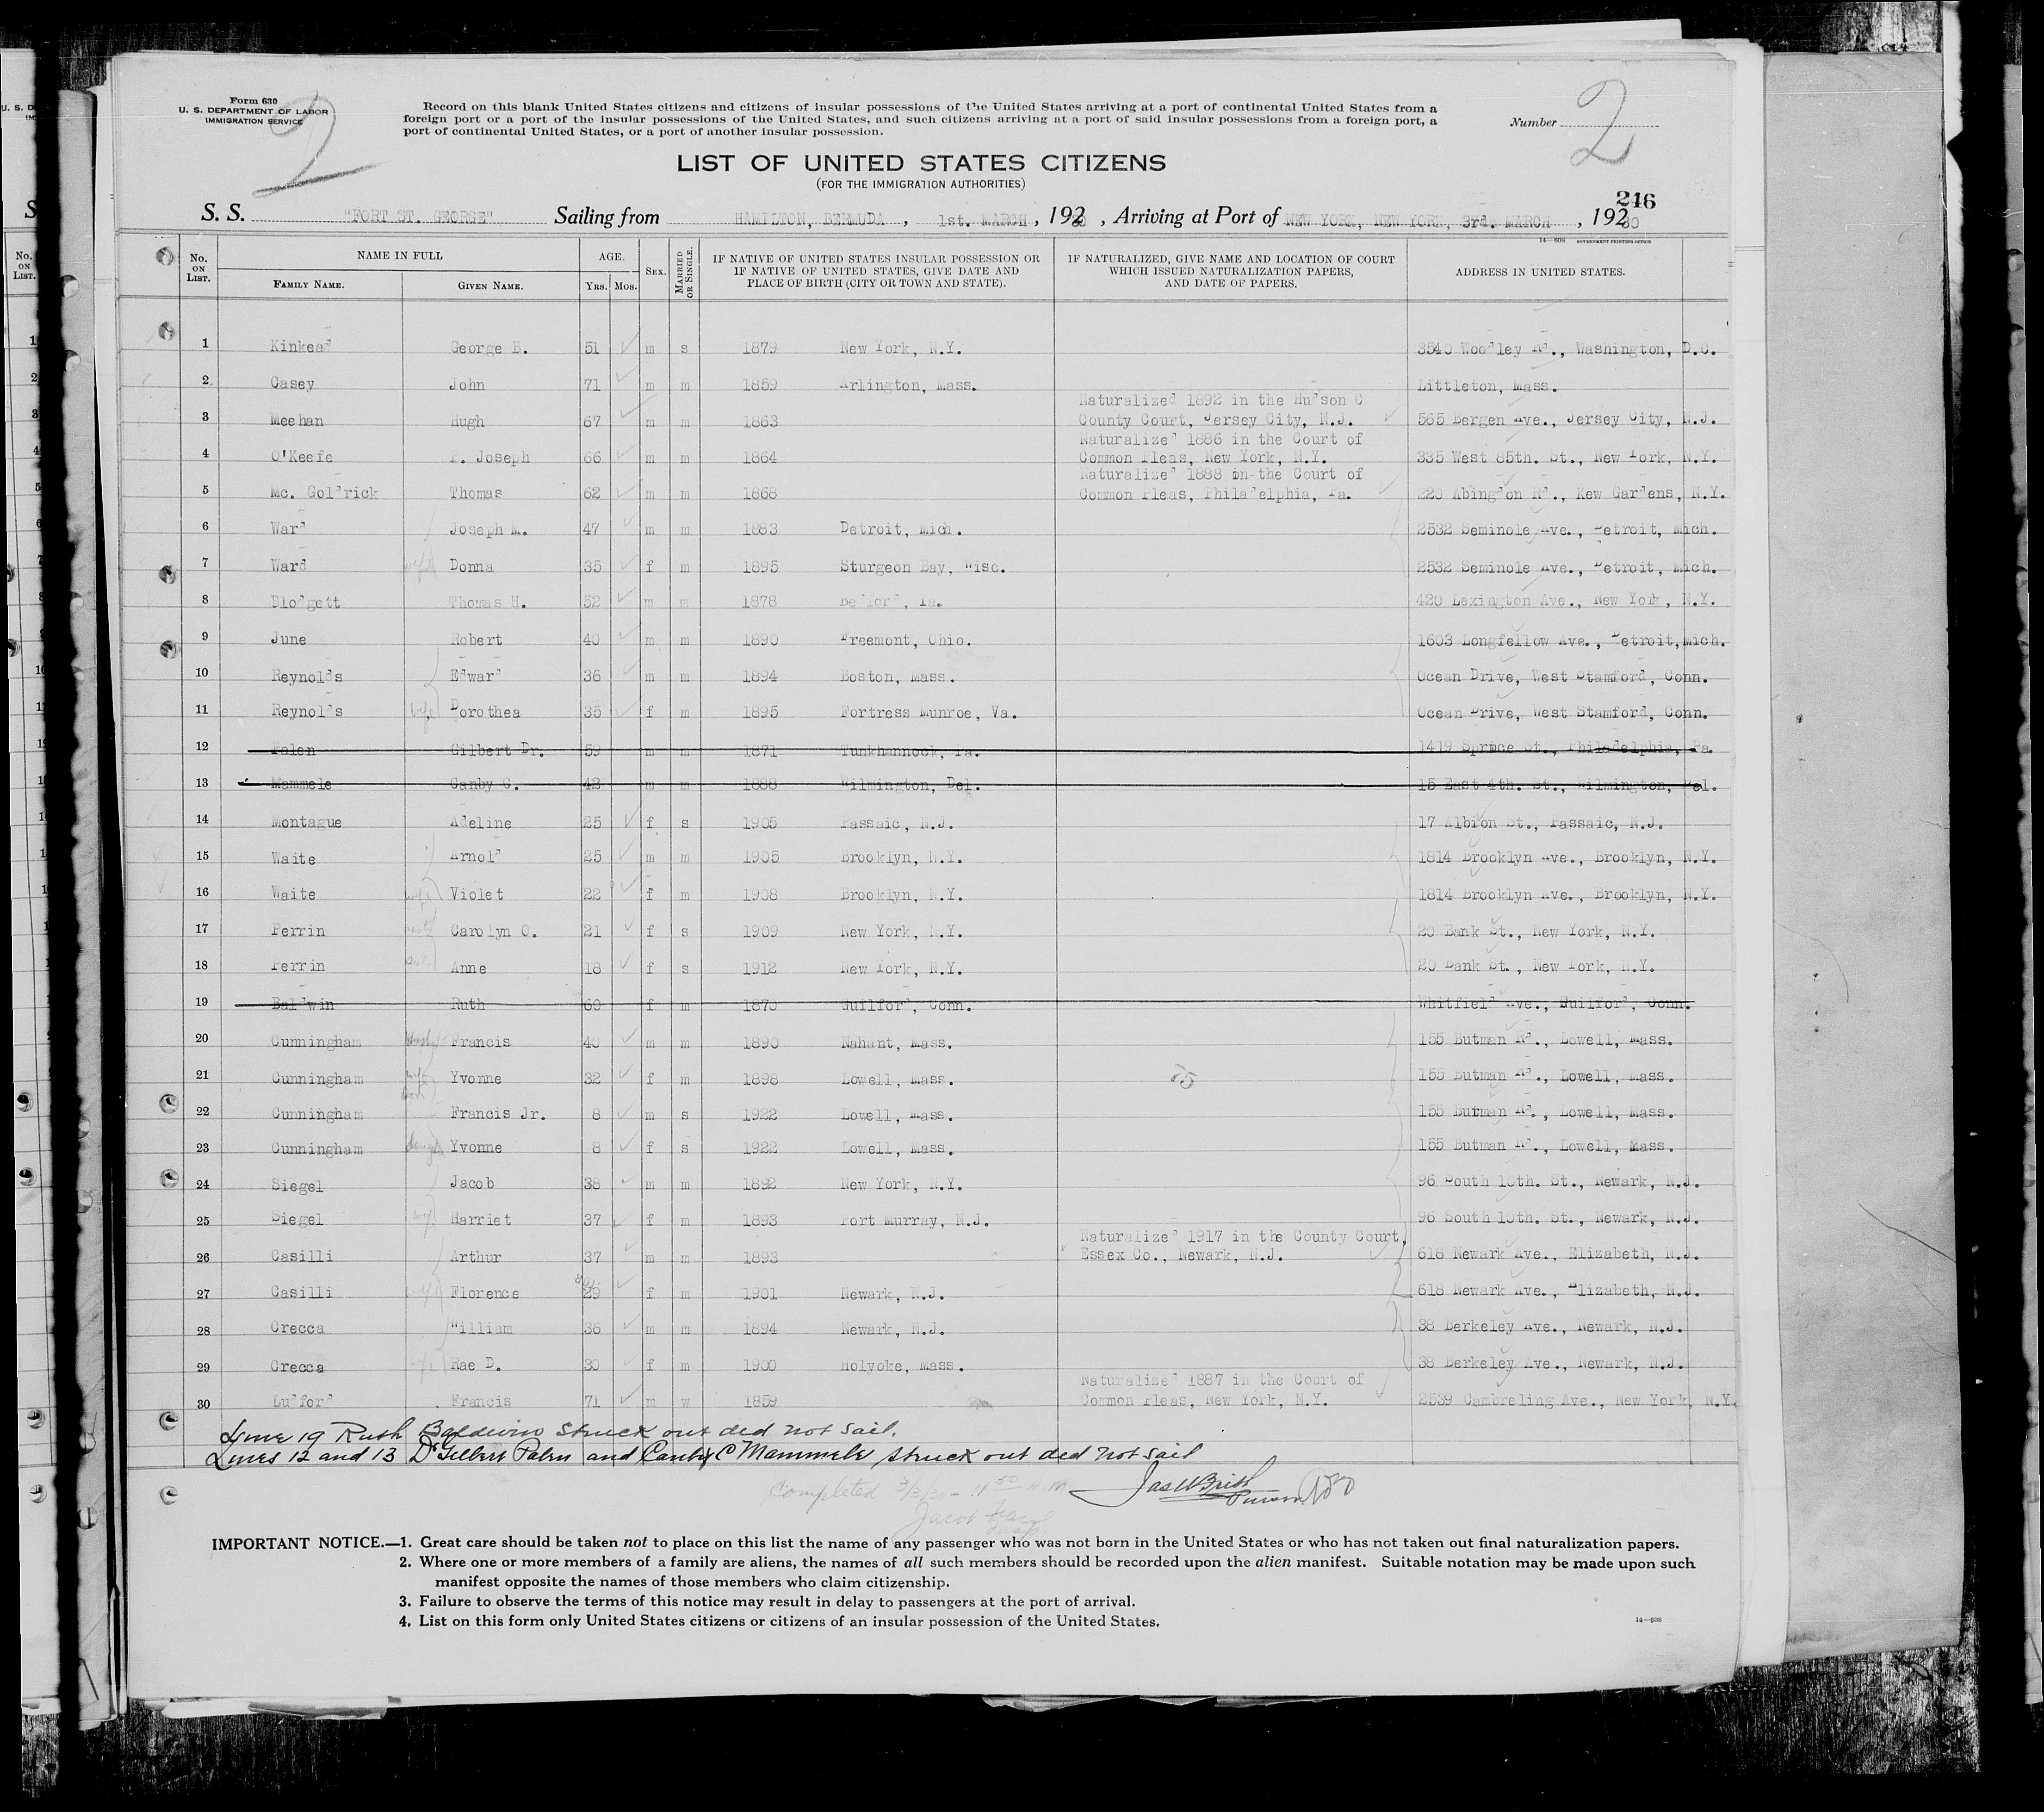 Form 630
U. S. DEPARTMENT OF LABOR
IMMIGRATION SERVICE
2
Record on this blank United States citizens and citizens of insular possessions of the United States arriving at a port of continental United States from a
foreign port or a port of the insular possessions of the United States, and such citizens arriving at a port of said insular possessions from a foreign port, a
port of continental United States, or a port of another insular possession.
Number 2
LIST OF UNITED STATES CITIZENS
(FOR THE IMMIGRATION AUTHORITIES)
246
S. S. "FORT ST. GEORGE" Sailing from HAMILTON, BERMUDA , 1st. MARCH , 192 , Arriving at Port of NEW YORK, NEW YORK, 3rd. MARCH , 19230
14—608 GOVERNMENT PRINTING OFFICE
No. ON LIST. NAME IN FULL FAMILY NAME. GIVEN NAME. AGE. YRS. MOS. SEX. MARRIED OR SINGLE. IF NATIVE OF UNITED STATES INSULAR POSSESSION OR IF NATIVE OF UNITED STATES, GIVE DATE AND PLACE OF BIRTH (CITY OR TOWN AND STATE). IF NATURALIZED, GIVE NAME AND LOCATION OF COURT WHICH ISSUED NATURALIZATION PAPERS, AND DATE OF PAPERS. ADDRESS IN UNITED STATES.
1 Kinkead George B. 51 m s 1879 New York, N.Y. 3540 Woodley Rd., Washington, D.C.
2 Casey John 71 m m 1859 Arlington, Mass. Littleton, Mass.
Naturalized 1892 in the Hudson C
3 Meehan Hugh 67 m m 1863 County Court, Jersey City, N.J. 565 Bergen Ave., Jersey City, N.J.
Naturalized 1886 in the Court of
4 O'Keefe P. Joseph 66 m m 1864 Common Pleas, New York, N.Y. 335 West 85th. St., New York, N.Y.
Naturalized 1888 in the Court of
5 Mc. Goldrick Thomas 62 m m 1868 Common Pleas, Philadelphia, Pa. 220 Abingdon Rd., Kew Gardens, N.Y.
6 Ward Joseph M. 47 m m 1883 Detroit, Mich. 2532 Seminole Ave., Detroit, Mich.
7 Ward wife Donna 35 f m 1895 Sturgeon Bay, Wisc. 2532 Seminole Ave., Detroit, Mich.
8 Blodgett Thomas H. 52 m m 1878 Bedford, Ia. 420 Lexington Ave., New York, N.Y.
9 June Robert 40 m m 1890 Freemont, Ohio. 1603 Longfellow Ave., Detroit, Mich.
10 Reynolds Edward 36 m m 1894 Boston, Mass. Ocean Drive, West Stamford, Conn.
11 Reynolds wife Dorothea 35 f m 1895 Fortress Munroe, Va. Ocean Drive, West Stamford, Conn.
12 Palen Gilbert Dr. 59 m m 1871 Tunkhannock, Pa. 1419 Spruce St., Philadelphia, Pa.
13 Mammele Canby C. 42 m m 1888 Wilmington, Del. 15 East 4th. St., Wilmington, Del.
14 Montague Adeline 25 f s 1905 Passaic, N.J. 17 Albion St., Passaic, N.J.
15 Waite Arnold 25 m m 1905 Brooklyn, N.Y. 1814 Brooklyn Ave., Brooklyn, N.Y.
16 Waite wife Violet 22 f m 1908 Brooklyn, N.Y. 1814 Brooklyn Ave., Brooklyn, N.Y.
17 Perrin Carolyn O. 21 f s 1909 New York, N.Y. 20 Bank St., New York, N.Y.
18 Perrin Anne 18 f s 1912 New York, N.Y. 20 Bank St., New York, N.Y.
19 Baldwin Ruth 60 f m 1870 Guilford, Conn. Whitfield Ave., Guilford, Conn.
20 Cunningham Francis 40 m m 1890 Nahant, Mass. 155 Butman Rd., Lowell, Mass.
21 Cunningham wife Yvonne 32 f m 1898 Lowell, Mass. 75 155 Butman Rd., Lowell, Mass.
22 Cunningham son Francis Jr. 8 m s 1922 Lowell, Mass. 155 Butman Rd., Lowell, Mass.
23 Cunningham Yvonne 8 f s 1922 Lowell, Mass. 155 Butman Rd., Lowell, Mass.
24 Siegel Jacob 38 m m 1892 New York, N.Y. 96 South 10th. St., Newark, N.J.
25 Siegel wife Harriet 37 f m 1893 Port Murray, N.J. 96 South 10th. St., Newark, N.J.
Naturalized 1917 in the County Court,
26 Casilli Arthur 37 m m 1893 Essex Co., Newark, N.J. 618 Newark Ave., Elizabeth, N.J.
27 Casilli wife Florence 29 f m 1901 Newark, N.J. 618 Newark Ave., Elizabeth, N.J.
28 Crecca William 36 m m 1894 Newark, N.J. 38 Berkeley Ave., Newark, N.J.
29 Crecca wife Rae D. 30 f m 1900 Holyoke, Mass. 38 Berkeley Ave., Newark, N.J.
Naturalized 1887 in the Court of
30 Ludford Francis 71 m w 1859 Common Pleas, New York, N.Y. 2539 Cambreling Ave., New York, N.Y.
Lyne 19 Ruth Baldwin struck out ded not sail.
Lynes 12 and 13 Dr Gilbert Palen and Canby C Mammele struck out ded not sail
Completed 3/3/30 - 11 50 A.M.
Jacob
IMPORTANT NOTICE.—1. Great care should be taken not to place on this list the name of any passenger who was not born in the United States or who has not taken out final naturalization papers.
2. Where one or more members of a family are aliens, the names of all such members should be recorded upon the alien manifest. Suitable notation may be made upon such
manifest opposite the names of those members who claim citizenship.
3. Failure to observe the terms of this notice may result in delay to passengers at the port of arrival.
4. List on this form only United States citizens or citizens of an insular possession of the United States.
14—608